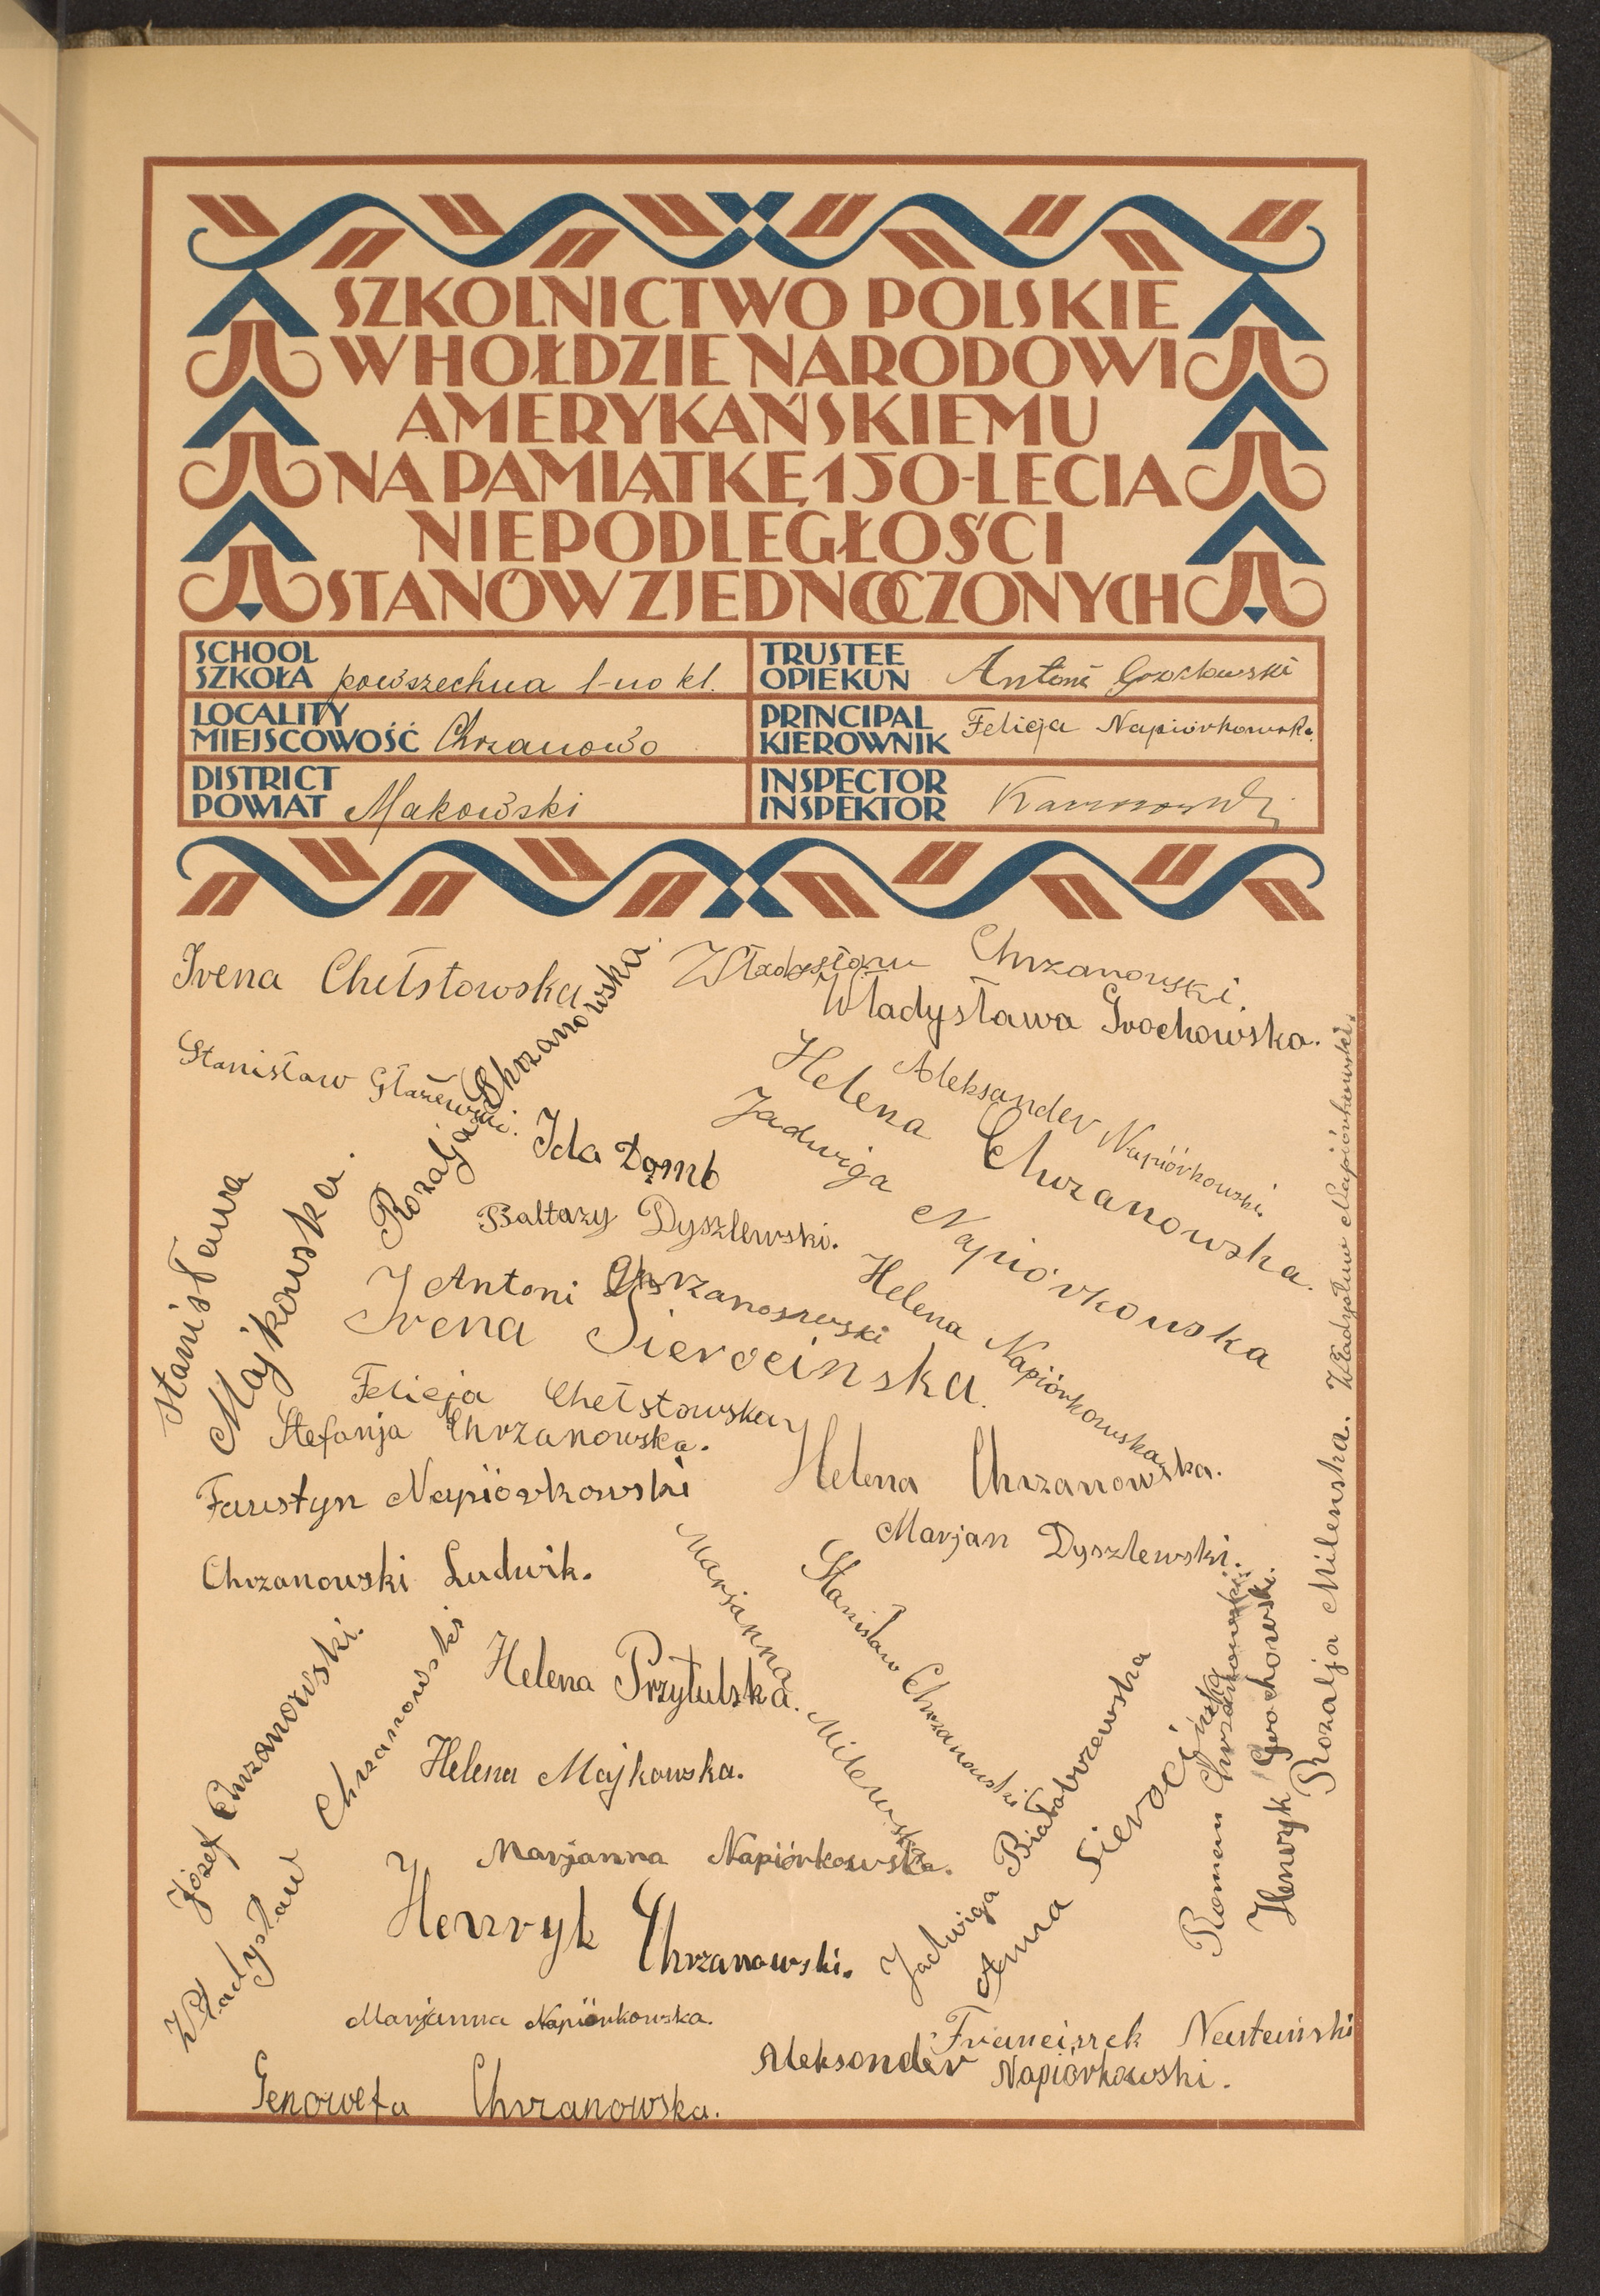 SZKOLNICTWO POLSKIE
W HOŁDZIE NARODOWI
AMERYKAŃSKIEMU
NA PAMIĄTKĘ 150-LECIA
NIEPODLEGŁOŚCI
STANÓW ZJEDNOCZONYCH
SCHOOL
SZKOŁA powszechna 1-no kl.
TRUSTEE
OPIEKUN Antoni
LOCALITY
MIEJSCOWOŚĆ Chrzanowo
PRINCIPAL
KIEROWNIK Felicja Napiórkowska
DISTRICT
POWIAT Makowski
INSPECTOR
INSPEKTOR
Irena Chełstowska
Rozalja Chrzanowska.
Władysław Chrzanowski.
Władysława Grochowska.
Stanisław Głażewski.
Aleksander Napiórkowski.
Helena Chrzanowska.
Jadwiga Napiórkowska
Ida Domb
Baltazy Dyszlewski.
Stanisława
Majkowska.
Antoni Chrzanoswski
Helena Napiórkowska
Irena Sierocinska.
Felicja Chełstowska
Stefanja Chrzanowska.
Helena Chrzanowska.
Faustyn Napiórkowski
Marjan Dyszlewski.
Chrzanowski Ludwik.
Marjanna Milewska
Stanisław Chrzanowski
Władysław Napiórkowski.
Rozalja Milenska.
Józef Chrzanowski.
Władysław Chrzanowski
Helena Przytulska.
Helena Majkowska.
Marjanna Napiórkowska.
Henryk Chrzanowski.
Jadwiga Białobrzewska
Anna Sierocińska
Roman Chrzanowski
Henryk Grochowski.
Marjanna Napiórkowska.
Franciszek
Aleksander Napiórkowski.
Genowefa Chrzanowska.